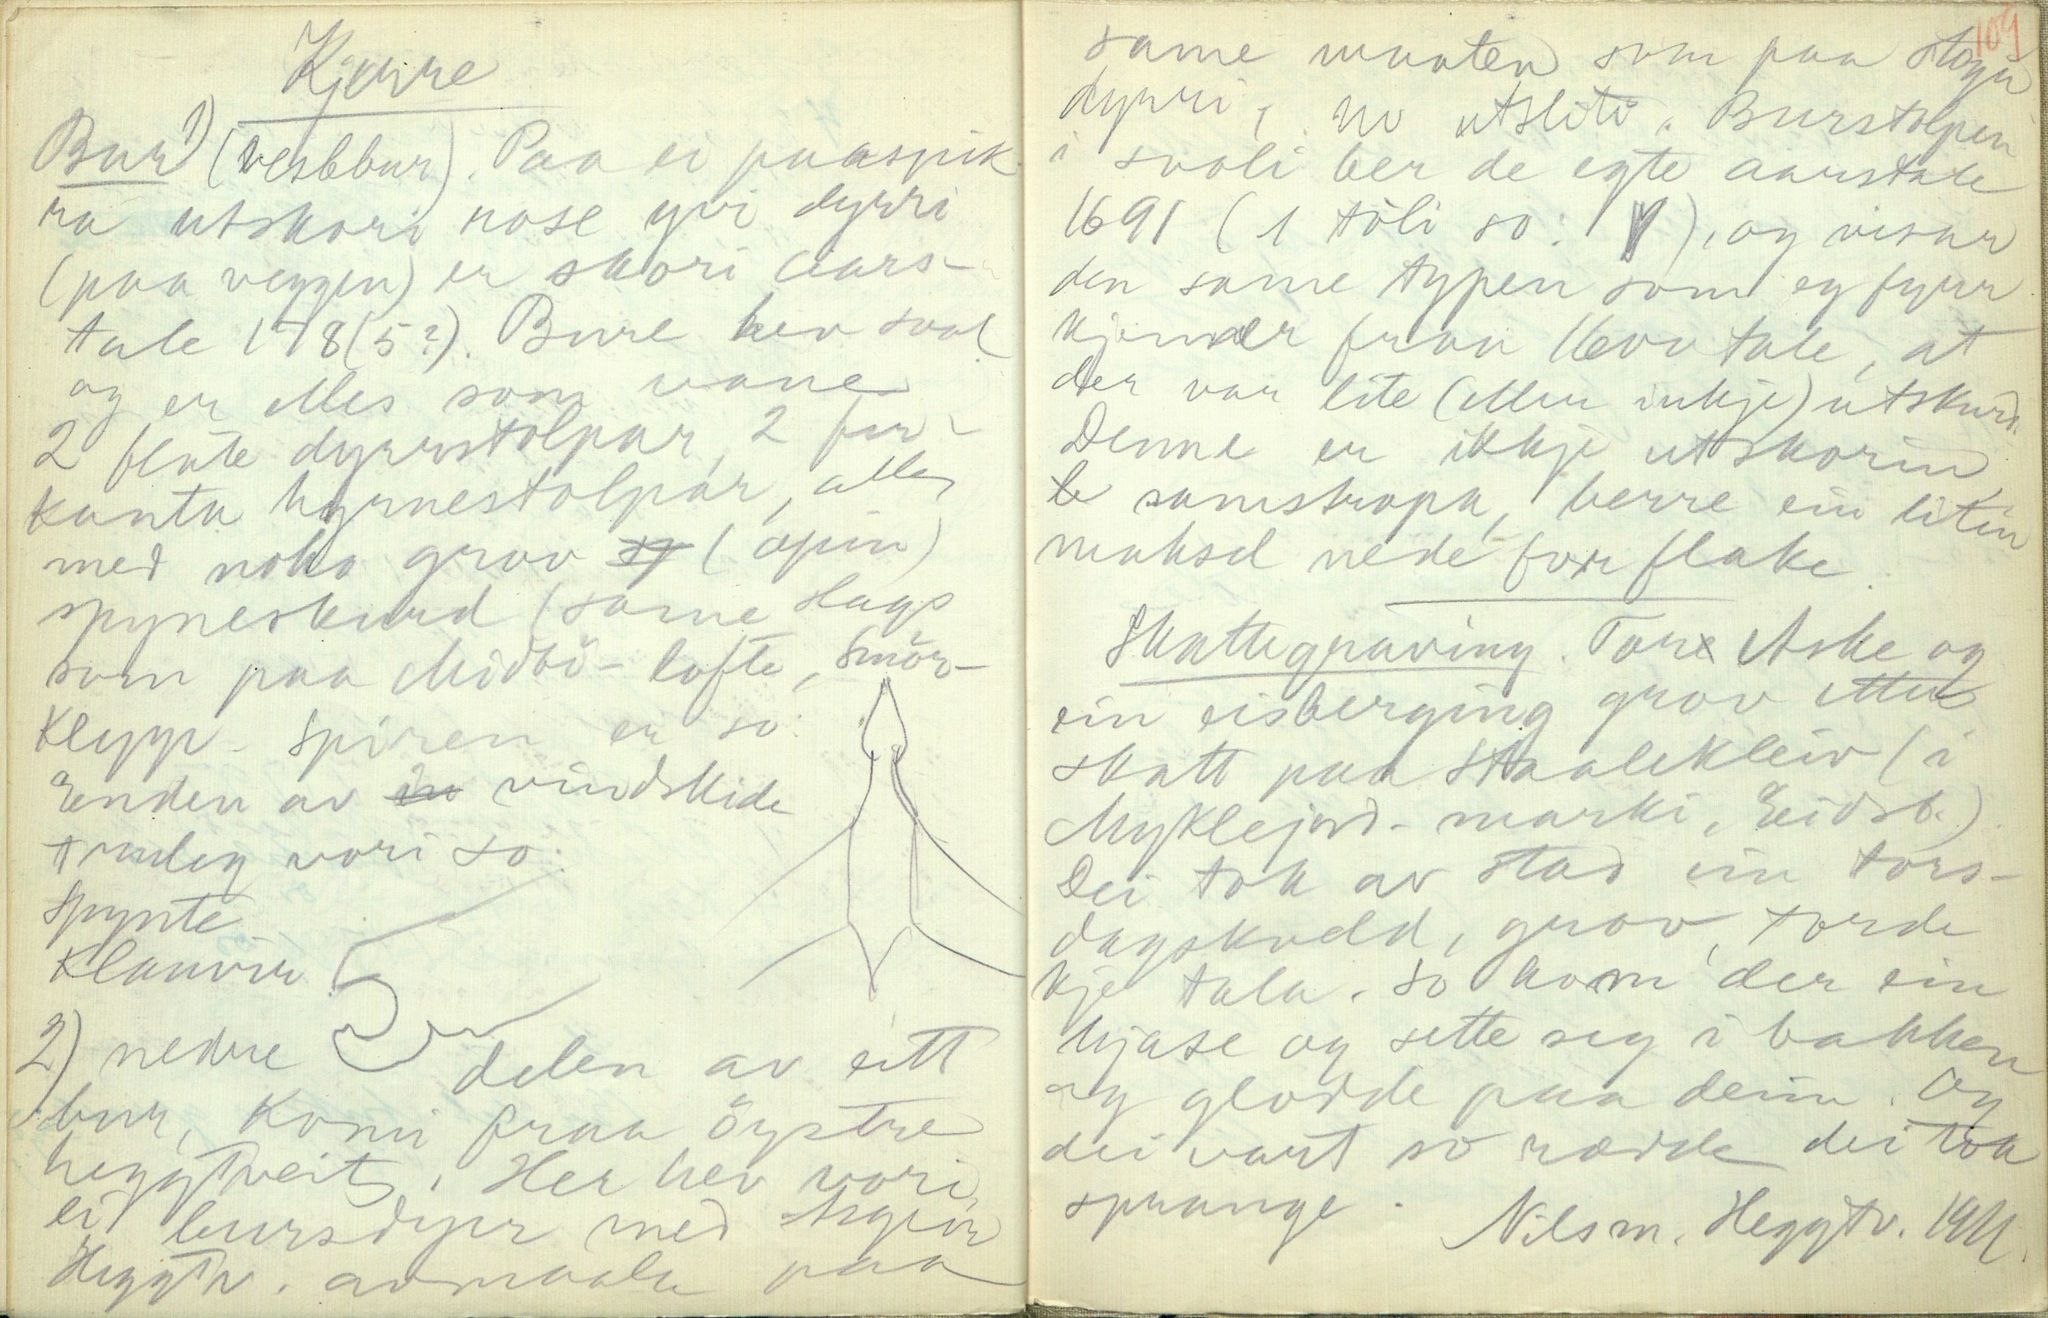 Kjerre
Bur 1) (vesbbur). Paa ei paaspik
ra utskori rose yvi dyrri
(paa veggen) er skori aars-
tale 178(5?). Bure hev sval
og er elles som vane
2 flate dyrrstolpar, 2 fir-
kanta hyrnestolpar, alle
med noko grov (open)
spyneskurd (same slags
som paa Midbö-lofte, Smör-
klepp. Spiren er so:
Enden av vindskide
truleg vori so:
Spynte
Klauvir
2) nedre delen av eitt
bur, komi fraa öystre
heggtveit. Her hev vori
ei bursdyr med Asgeir
Heggtv. avmaala paa
109
same maaten som paa stogu
dyrri, no utsliti. Burstolpen
i svali ber de egte aarstale
1691 (1 töli so: ), og visar
den same typen som eg fyrr
kjenner fraa 1600 tale, at
der var lite (eller inkje) utskurd.
Denne er ikkje utskorin,
samskropa, berre ein liten
naksel nede for flake.
Skattegraving. Tore Aske og
ein eisberging grov etter
skatt paa Staalekleiv (i
Myklejord-marki, Eidsb.)
Dei tok av stad ein tors-
dagskveld, grov, torde
kje tala. So kom der ein
hjase og sette seg i bakken
og glodde paa deim. Og
dei vart so rædde dei tok
sprange.
Nils m. Heggtv. 1911.